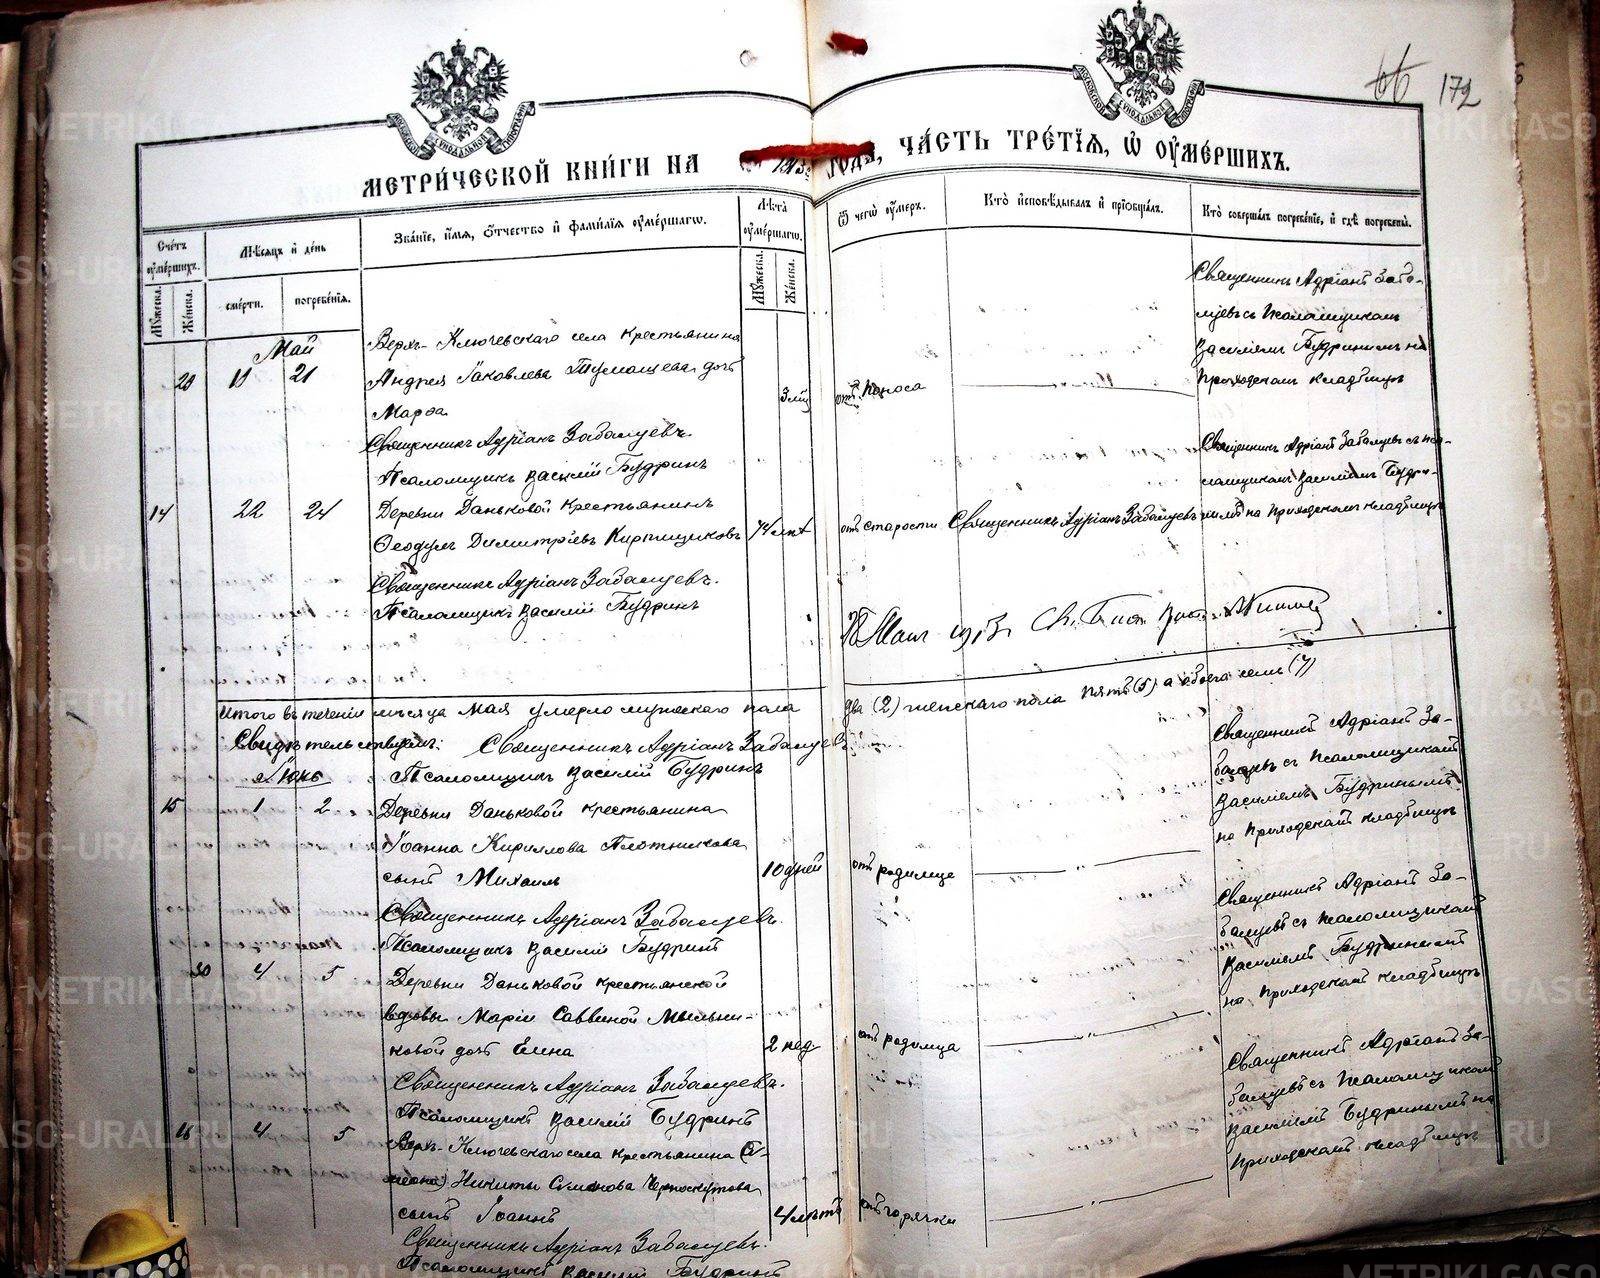 172
МЕТРИ́ЧЕСКОЙ КНИ́ГИ НА 1913 года, ЧА́СТЬ ТРЕ́ТЇѦ, Ѡ҆ ОУ҆МЕ́РШИХЪ.
Сче́тъ оу҆ме́ршихъ.
Му́жеска.
Же́нска.
Мѣ́сѧцъ и҆ де́нь
сме́рти.
погребе́нїѧ.
Зва́нїе, и҆́мѧ, ѻ҆́тчество и҆ фами́лїѧ оу҆ме́ршагѡ.
Лѣ́та оу҆ме́ршагѡ.
Му́жеска.
Же́нска.
Ѿ чегѡ̀ оу҆́меръ.
Кто̀ и҆сповѣ́дывалъ и҆ прїѡбща́лъ.
Кто̀ соверша́лъ погребе́нїе, и҆ гдѣ̀ погребены̀.
Май
Верхъ-Ключевскаго села крестьянина
29 19 21 Андрея Іаковлева Тумашева дочь
Марѳа 3 мѣс. отъ поноса
Священникъ Адріанъ Забалуевъ съ псаломщикомъ Василіемъ Будринымъ на приходскомъ кладбищѣ
Священникъ Адріанъ Забалуевъ.
Псаломщикъ Василій Будринъ
14 22 24 Деревни Даньковой крестьянинъ
Ѳеодулъ Димитріевъ Кирпищиковъ 74 лѣт отъ старости Священникъ Адріанъ Забалуевъ
Священникъ Адріанъ Забалуевъ съ псаломщикомъ Василіемъ Будринымъ на приходскомъ кладбищѣ
Священникъ Адріанъ Забалуевъ.
Псаломщикъ Василій Будринъ
1913
Итого въ теченіи мѣсяца Мая умерло мужескаго пола два (2) женскаго пола пять (5) а обоего семь (7)
Свидѣтельствуемъ: Священникъ Адріанъ Забалуевъ
Псаломщикъ Василій Будринъ
Іюнь
15 1 2 Деревни Даньковой крестьянина
Іоанна Кириллова Плотникова
сынъ Михаилъ 10 дней отъ родимца
Священникъ Адріанъ За-
балуевъ съ псаломщикомъ
Василіемъ Будринымъ
на приходскомъ кладбищѣ
Священникъ Адріанъ Забалуевъ.
Псаломщикъ Василій Будринъ
30 4 5 Деревни Даньковой крестьянской
вдовы Маріи Саввиной Мыльни-
ковой дочь Елена 2 нед. отъ родимца
Священникъ Адріанъ За-
балуевъ съ псаломщикомъ
Василіемъ Будринымъ
на приходскомъ кладбищѣ
Священникъ Адріанъ Забалуевъ.
Псаломщикъ Василій Будринъ
16 4 5 Верхъ-Ключевскаго села крестьянина
Никиты Симонова Черноскутова
сынъ Іоаннъ 4 лѣтъ отъ горячки
Священникъ Адріанъ За-
балуевъ съ псаломщикомъ
Василіемъ Будринымъ на
приходскомъ кладбищѣ
Священникъ Адріанъ Забалуевъ.
Псаломщикъ Василій Будринъ
METRIKI.GASO-URAL.RU